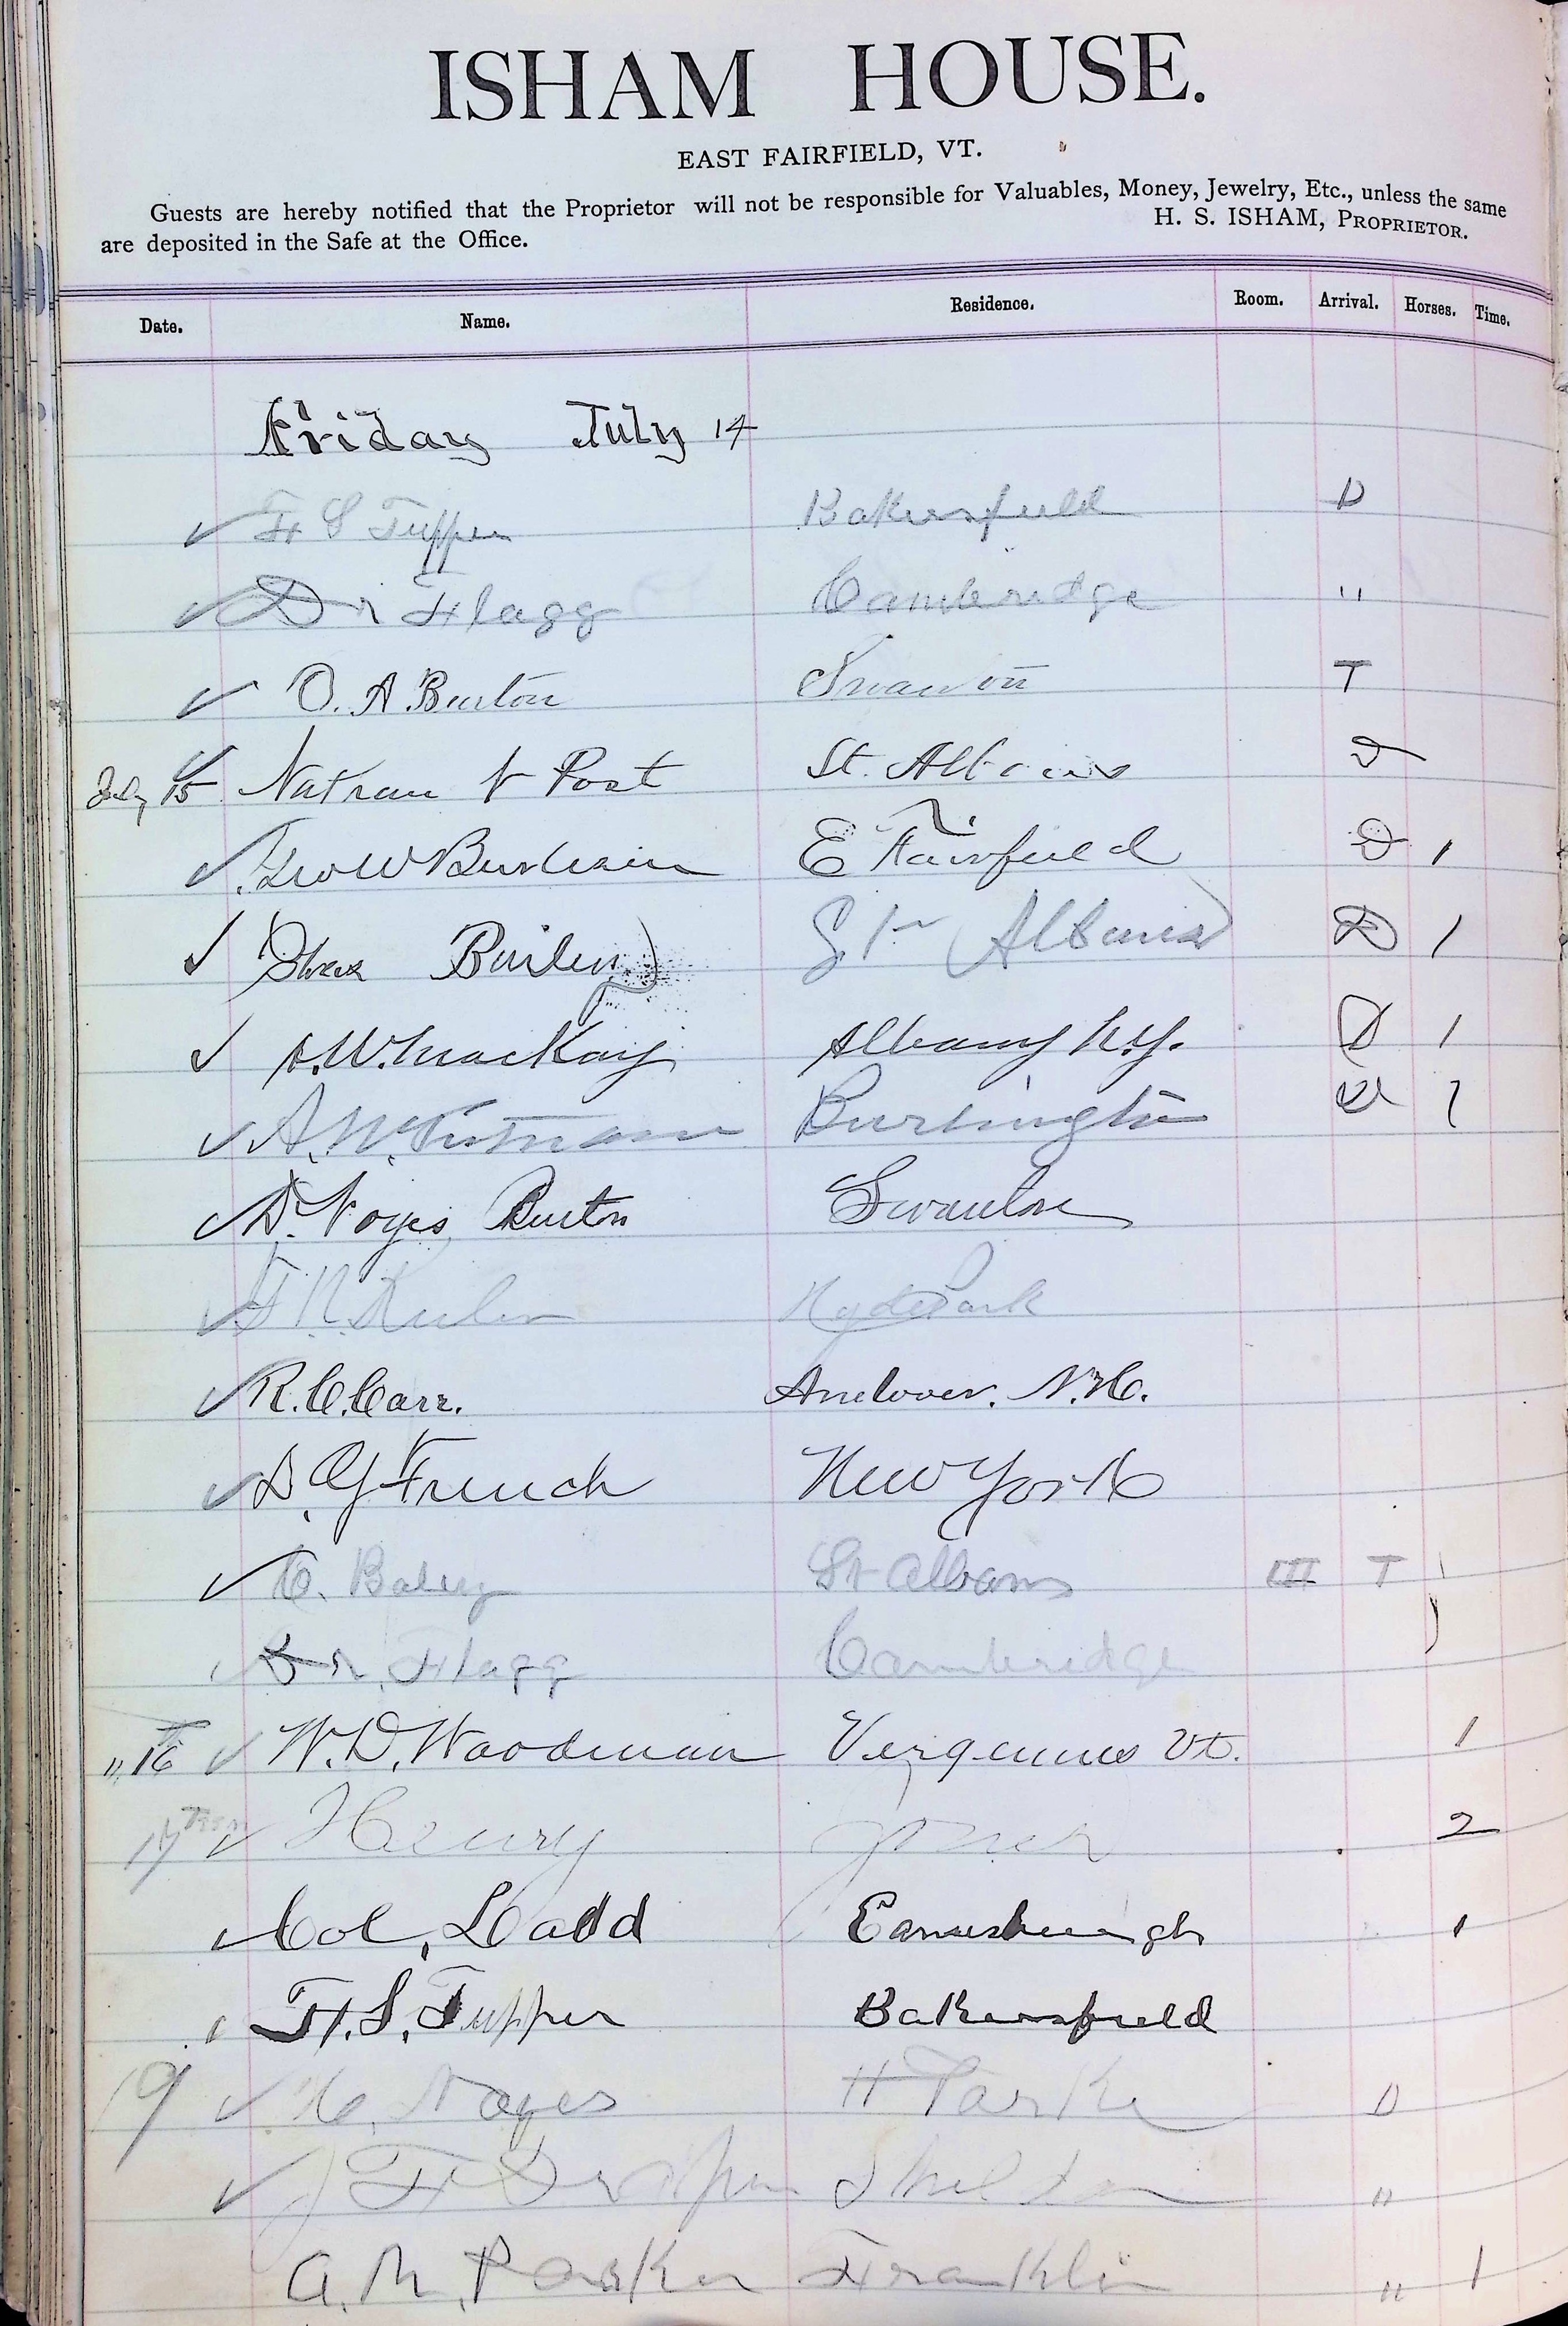 ISHAM HOUSE.
EAST FAIRFIELD, VT.
Guests are hereby notified that the Proprietor will not be responsible for Valuables, Money, Jewelry, Etc., unless the same
are deposited in the Safe at the Office.
H. S. ISHAM, PROPRIETOR.
Date. Name. Residence. Room. Arrival. Horses. Time.
Friday July 14
F S Tupper Bakersfield D
Dr Flagg Cambridge "
O. A. Burton Swanton T
July 15 Post St. Albans D
Geo W E Fairfield D 1
St Albans D 1
A. W. MacKay Albany N.Y. D 1
A. W. Burlington D 1
D. Noyes Burton Swanton
Hyde Park
R. C. Carr. Andover. N.H.
French New York
C. Bailey St Albans III T 1
Dr. Flagg Cambridge 1
" 16 W. D. Woodman Vergennes Vt. 1
17 Henry Jones 2
Col. Ladd Enosburgh 1
F. S. Tupper Bakersfield
19 Noyes H Park D
J F Draper Sheldon "
A. M. Parker Franklin " 1